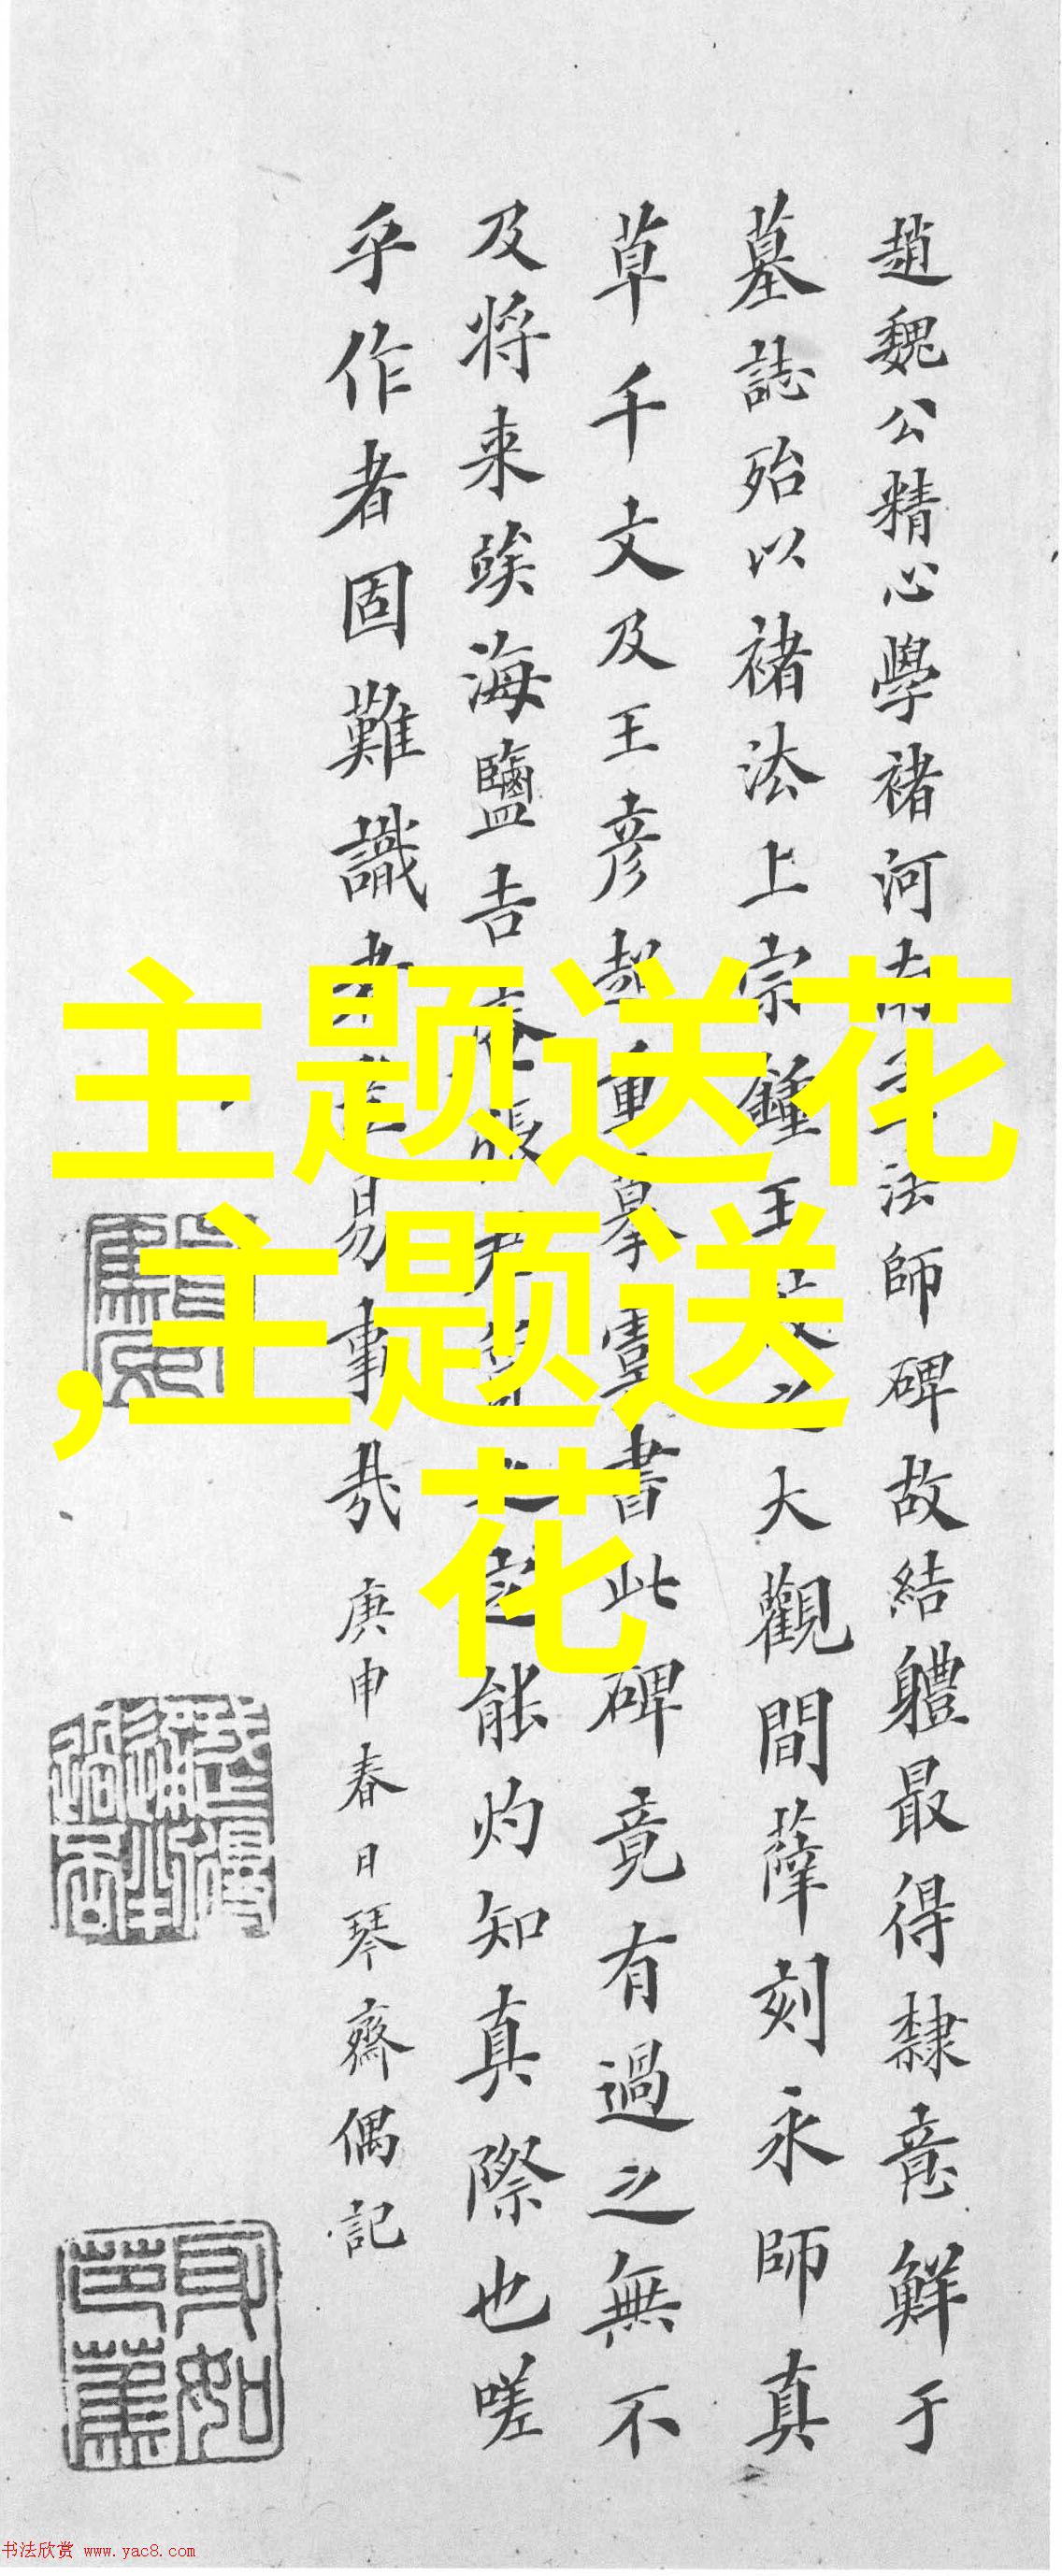 趙魏公精心學褚河南法師碑故結軆最得隸意鮮于
墓誌殆以褚法上宗鍾王之大觀間薛刻永師真
草千文及王彥超重摹書此碑竟有過之無不
及将来竢海鹽吉張能灼知真際也嗟
乎作者固難識者易事哉庚申春日琴齋偶記
主题送花
,主题送
花
书法欣赏 www.yac8.com